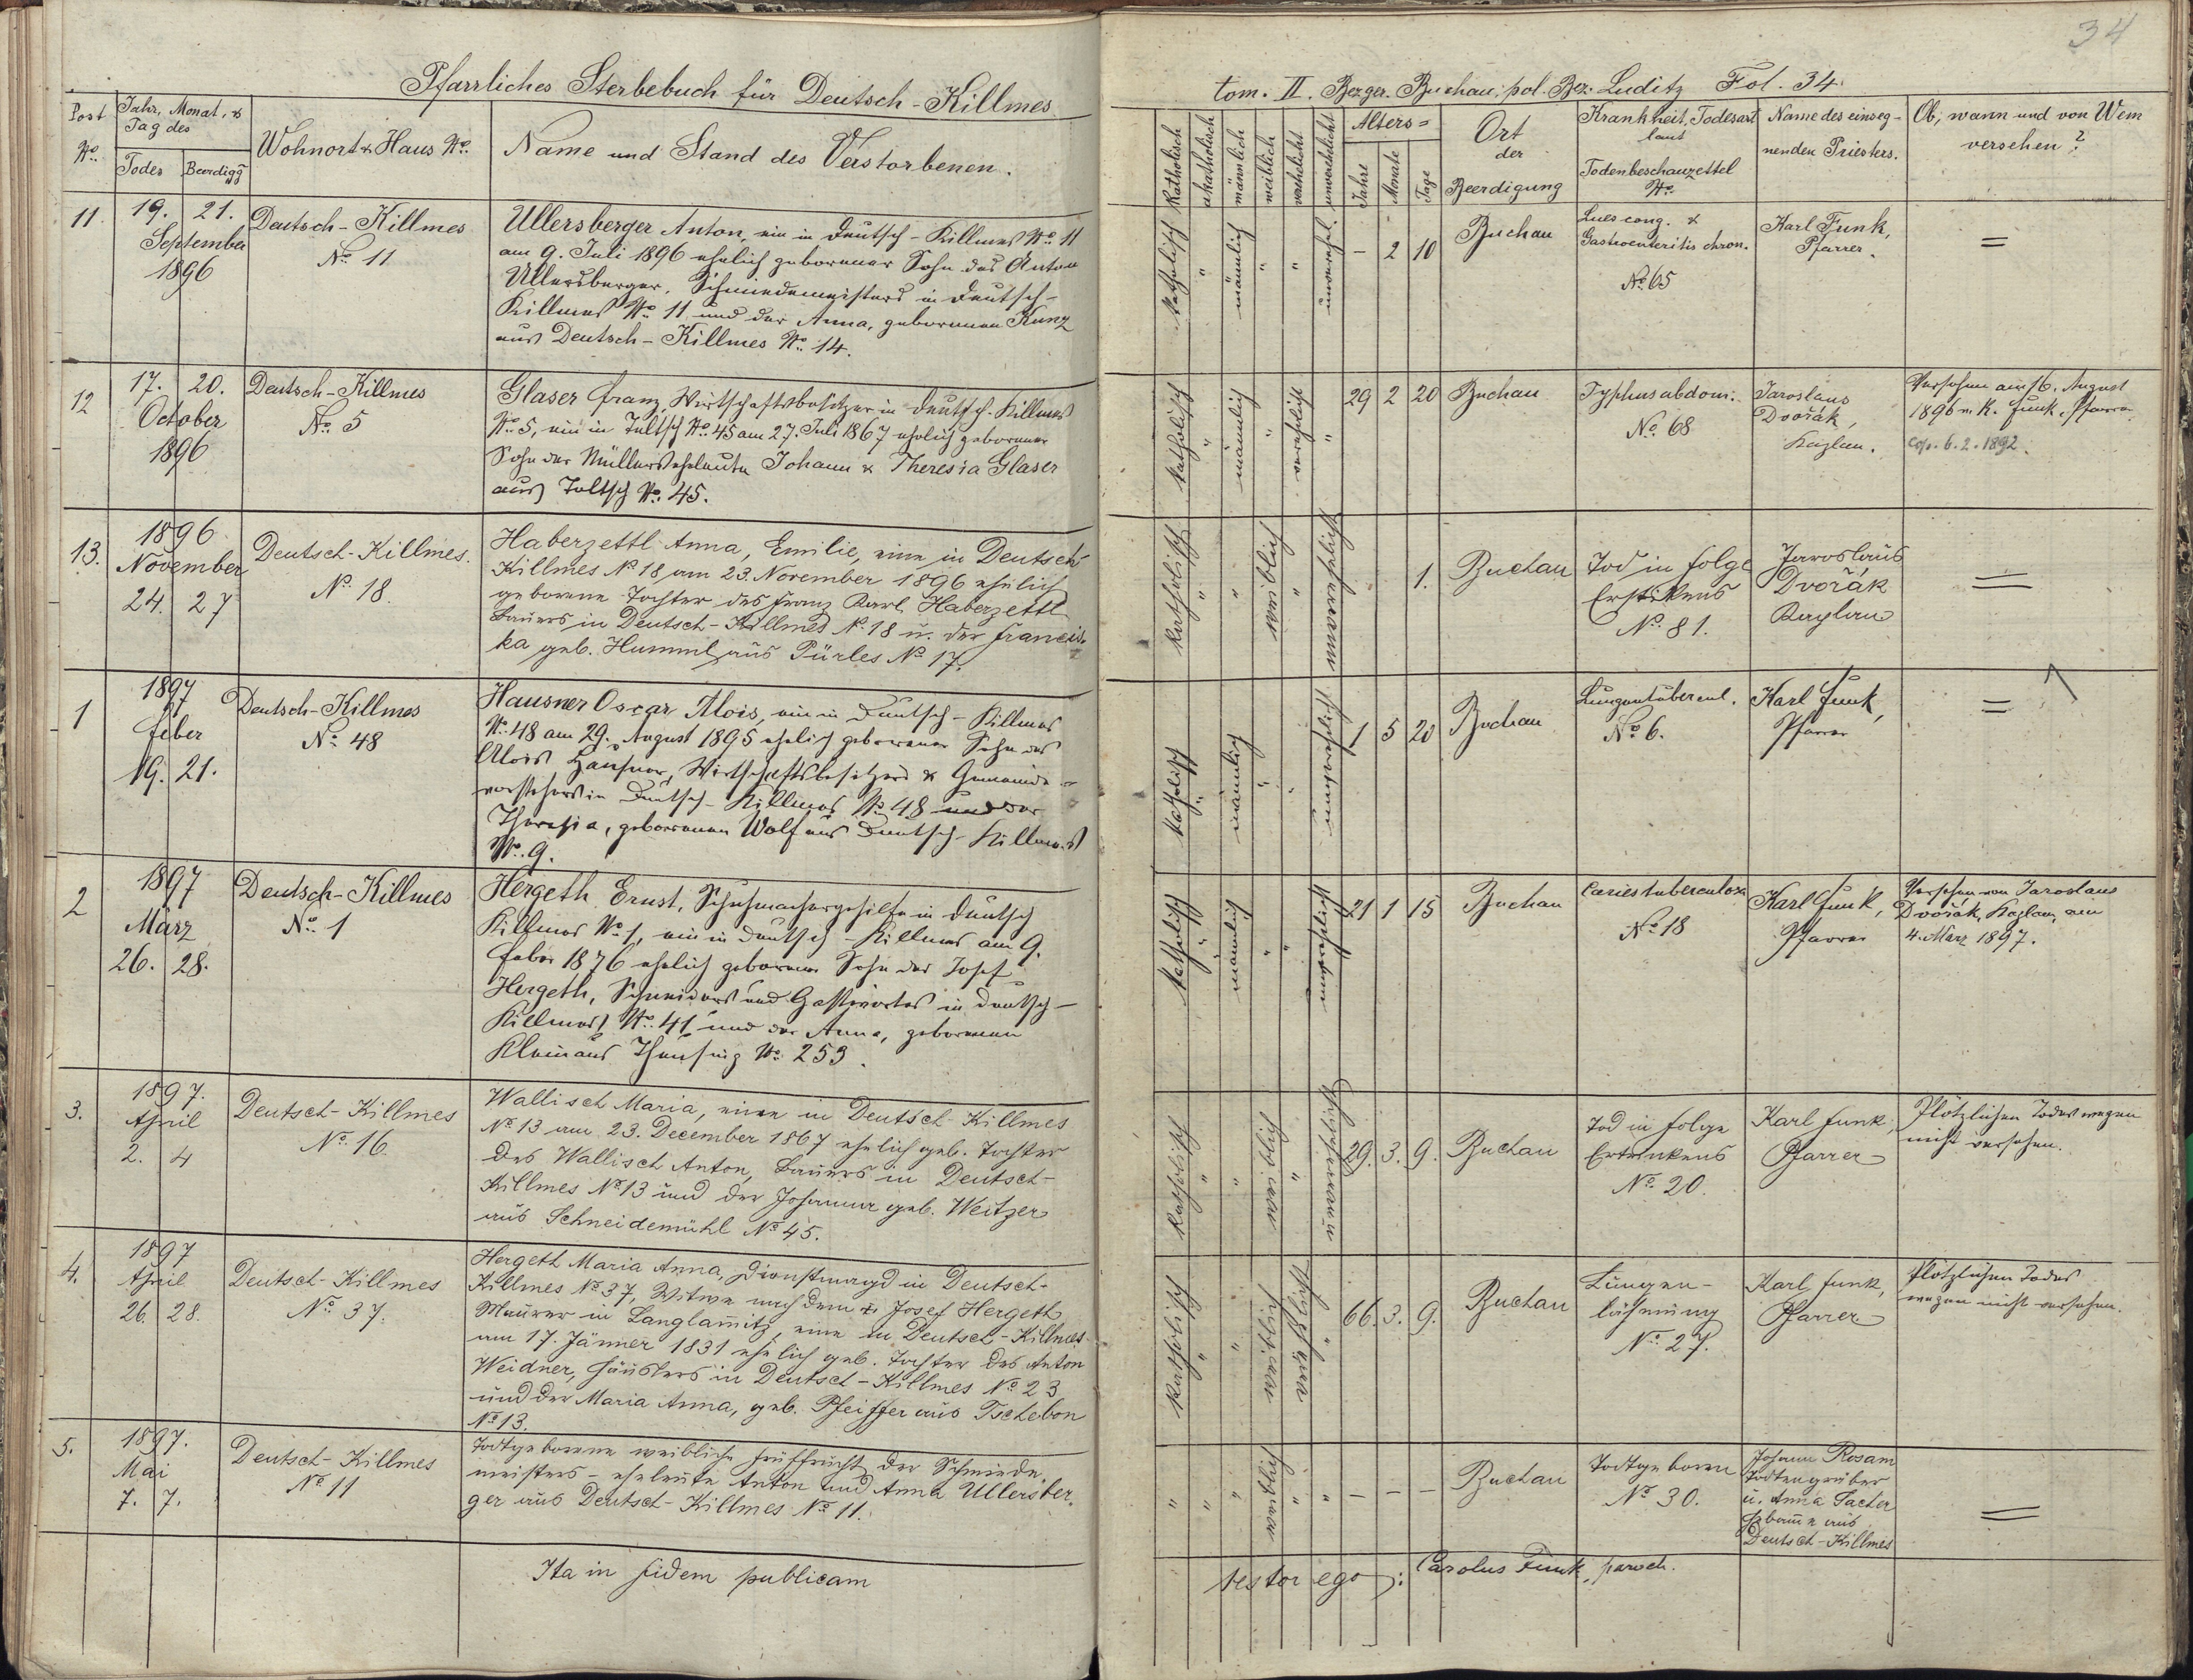 34
Pfarrliches Sterbebuch für Deutsch-Killmes
Post No.
Jahr, Monat, & Tag des
Todes
Beerdigg
Wohnort & Haus No.
Name und Stand des Verstorbenen.
11.
19. 21.
September
1896
Deutsch-Killmes
No. 11
Ullersberger Anton, ein in Deutsch-Killmes No. 11
am 9. Juli 1896 ehelich geborener Sohn des Anton
Ullersberger, Schmiedemeisters in Deutsch-
Killmes No. 11 und der Anna, geborenen Kunz
aus Deutsch-Killmes No. 14.
12
17. 20.
October
1896
Deutsch-Killmes
No. 5
Glaser Franz, Wirtschaftsbesitzer in Deutsch-Killmes
No. 5, ein in Teltsch No. 45 am 27. Juli 1867 ehelich geborener
Sohn der Müllerseheleute Johann & Theresia Glaser
aus Teltsch No. 45.
13.
1896
November
24. 27
Deutsch-Killmes.
No. 18.
Haberzettl Anna, Emilie, eine in Deutsch-
Killmes No 18 am 23. November 1896 ehelich
geborene Tochter des Franz Karl Haberzettl
Bauers in Deutsch-Killmes No. 18 u. der Francis-
ka geb. Humml aus Pürles No 17.
1
1897
Feber
19. 21.
Deutsch-Killmes
No. 48
Hausner Oscar Alois, ein in Deutsch-Killmes
No. 48 am 29. August 1895 ehelich geborener Sohn des
Alois Hausner, Wirtschaftsbesitzers & Gemeinde-
vorstehers in Deutsch-Killmes No. 48 und der
Theresia, geborenen Wolf aus Deutsch-Killmes
No. 9.
2
1897
März
26. 28.
Deutsch-Killmes
No. 1
Hergeth Ernst, Schuhmachergehilfe in Deutsch
Killmes No. 1, ein in Deutsch-Killmes am 9.
Feber 1876 ehelich geborener Sohn des Josef
Hergeth, Schneiders und Gastwirtes in Deutsch-
Killmes No. 41 und der Anna, geborenen
Klein aus Theusing No. 253.
3.
1897.
April
2. 4
Deutsch-Killmes
No. 16.
Wallisch Maria, eine in Deutsch-Killmes
No 13 am 23. December 1867 ehelich geb. Tochter
des Wallisch Anton, Bauers in Deutsch-
Killmes No 13 und der Johanna geb. Weitzer
aus Schneidemühl No 45.
4.
1897
April
26. 28.
Deutsch-Killmes
No. 37.
Hergeth Maria Anna, Dienstmagd in Deutsch-
Killmes No 37, Witwe nach dem Josef Hergeth
Maurer in Langlamitz, eine in Deutsch-Killmes
am 17. Jänner 1831 ehelich geb. Tochter des Anton
Weidner, Häuslers in Deutsch-Killmes No 23
und der Maria Anna, geb. Pfeiffer aus Tschebon
No 13.
5.
1897.
Mai
7. 7.
Deutsch-Killmes
No 11
Todtgeborene weibliche Frühfrucht der Schmiede-
meisters-eheleute Anton und Anna Ullersber-
ger aus Deutsch-Killmes No 11.
Ita in fidem publicam
tom. II. Bezger. Buchau, pol. Bez. Luditz Fol. 34.
Katholisch
akatholisch
männlich
weiblich
verehelicht
unverehelicht
Alters=
Jahre
Monate
Tage
Ort
der
Beerdigung
Krankheit, Todesart
laut
Todenbeschauzettel
No.
Name des einseg-
nenden Priesters.
Ob, wann und von Wem
versehen?
Katholisch " männlich " " unverehel. - 2 10
Buchau
Lues cong. &
Gastroenteritis chron.
No. 65
Karl Funk,
Pfarrer.
=
Katholisch " männlich " verehelicht " 29 2 20
Buchau
Typhus abdom.
No. 68
Jaroslaus
Dvořák,
Kaplan.
Versehen am 16. August
1896 v. K. Funk, Pfarrer
cop. 6.2.1892.
Katholisch " " weiblich " unverehelicht 1.
Buchau
Tod in folge
Erstikens
No. 81.
Jaroslaus
Dvořák
Kaplan
=
Katholisch " männlich " " unverehelicht 1 5 20
Buchau
Lungentubercul.
No. 6.
Karl Funk,
Pfarrer
=
Katholisch " männlich " " unverehelicht 21 1 15
Buchau
Caries tuberculosa
No. 18
Karl Funk,
Pfarrer
Versehen von Jaroslaus
Dvořák, Kaplan, am
4. März 1897.
Katholisch " " weiblich " unverehelicht 29. 3. 9.
Buchau
Tod in folge
Ertrinkens
No. 20.
Karl Funk,
Pfarrer
Plötzlichen Todes wegen
nicht versehen.
Katholisch " " weiblich verehelicht " 66. 3. 9.
Buchau
Lungen-
lähmung
No. 27.
Karl Funk,
Pfarrer
Plötzlichen Todes
wegen nicht versehen.
" " " weiblich " " - - -
Buchau
Todtgeboren
No 30.
Johann Rosam
Todtengräber
u. Anna Tacher
Hebamme aus
Deutsch-Killmes
=
testor ego: Carolus Funk, paroch.